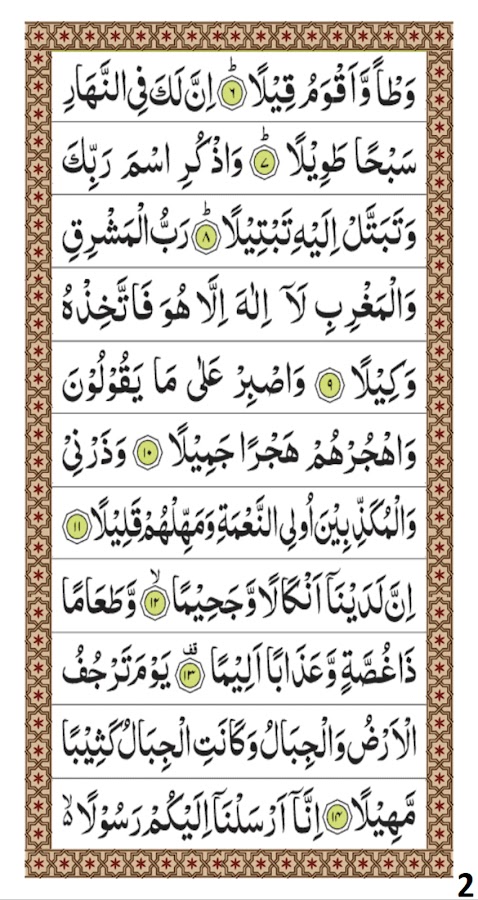 وَطْاً وَّاَقْوَمُ قِيْلًا ؕ۝۶ اِنَّ لَكَ فِى النَّهَارِ
سَبْحًا طَوِيْلًا ؕ۝۷ وَاذْكُرِ اسْمَ رَبِّكَ
وَتَبَتَّلْ اِلَيْهِ تَبْتِيْلًا ؕ۝۸ رَبُّ الْمَشْرِقِ
وَالْمَغْرِبِ لَاۤ اِلٰهَ اِلَّا هُوَ فَاتَّخِذْهُ
وَكِيْلًا ۝۹ وَاصْبِرْ عَلٰى مَا يَقُوْلُوْنَ
وَاهْجُرْهُمْ هَجْرًا جَمِيْلًا ۝۱۰ وَذَرْنِىْ
وَالْمُكَذِّبِيْنَ اُولِى النَّعْمَةِ وَمَهِّلْهُمْ قَلِيْلًا ۝۱۱
اِنَّ لَدَيْنَاۤ اَنْكَالًا وَّجَحِيْمًا ۙ۝۱۲ وَّطَعَامًا
ذَا غُصَّةٍ وَّعَذَابًا اَلِيْمًا ۝۱۳ يَوْمَ تَرْجُفُ
الْاَرْضُ وَالْجِبَالُ وَكَانَتِ الْجِبَالُ كَثِيْبًا
مَّهِيْلًا ۝۱۴ اِنَّاۤ اَرْسَلْنَاۤ اِلَيْكُمْ رَسُوْلًا ۙ۬
2